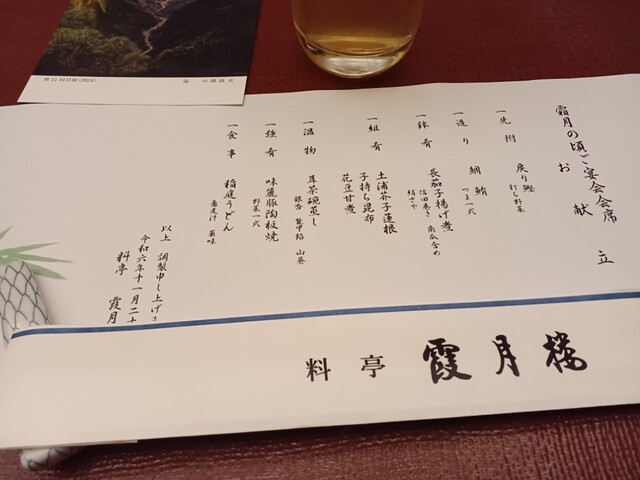 霜月の頃ご宴会会席
お献立
一先附
戻り鰹
打ち野菜
一造り
鯛 鮪
つま一式
一鉢肴
長茄子揚げ煮
信田巻き 南瓜含め
絹さや
一組肴
土浦芥子蓮根
子持ち昆布
花豆甘煮
一温物
茸茶碗蒸し
銀杏 鼈甲餡 山葵
一強肴
味麗豚陶板焼
野菜一式
一食事
稲庭うどん
蕎麦汁 薬味
以上 調製申し上げ
令和六年十一月二十
料亭 霞月
料亭 霞月楼
第11回日展(2024)
小国